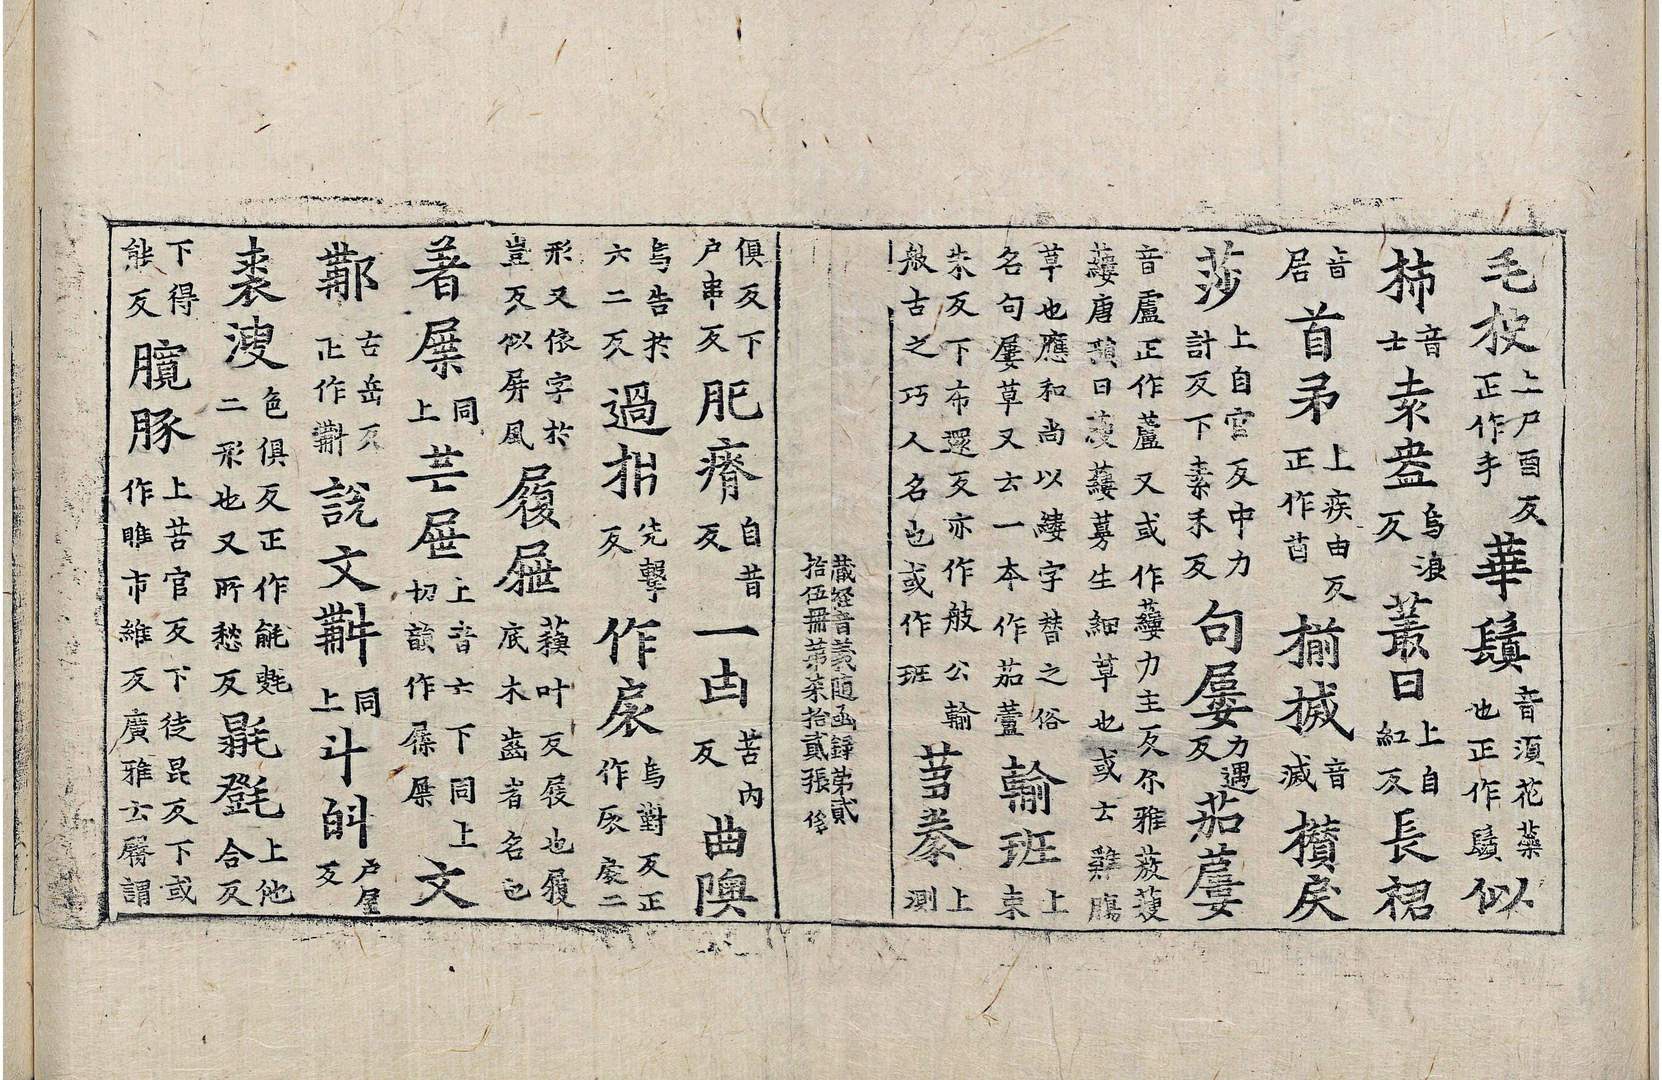 毛杸上尸酉反正作手華鬚音須花蘂也正作鬚似
柿音士素盎烏浪反叢曰上自紅反長裙
音居首矛上疾由反正作酋揃搣音滅攢戾
莎上自官反中力計反下素禾反句屢力遇反茹蔞
音盧正作蘆又或作蔞力主反尓雅蔱蔓
蔞唐韻曰蔓蔞蒡生細草也或云雞膓
草也應和尚以縷字替之俗
名句屢草又云一本作茹蘆輸班上束
朱反下布還反亦作般公輸
般古之巧人名也或作班菩搼上測
藏經音義随函録第貳
拾伍冊第柒拾貳張
俱反下户串反肥瘠自昔反一凷苦內反曲隩
烏告於六二反過拰先擊反作扆烏對反正作扆二
形又依字於豈反似屏風履屜蘇叶反屐也履底木齒者名也
著屟同上芒屜上音亡下同上切韻作屧屟文
鄿古岳反正作斠說文斠同上斗㪷户屋反
裘溲色俱反正作毹毾二形也又所愁反毾㲪上他合反
下得能反臗豚上苦官反下徒昆反下或作脽市維反廣雅云臀謂